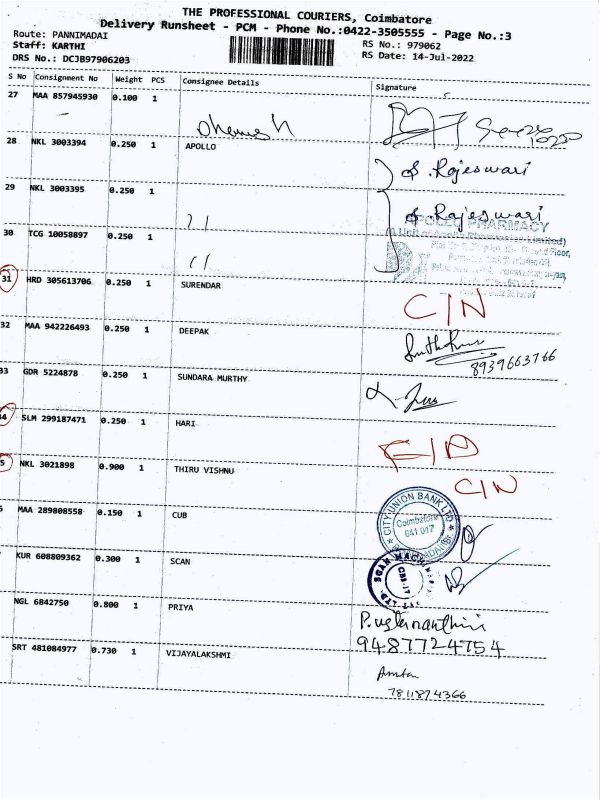 THE PROFESSIONAL COURIERS, Coimbatore
Delivery Runsheet - PCM - Phone No.:0422-3505555 - Page No.:3
Route: PANNIMADAI
Staff: KARTHI RS No.: 979062
DRS No.: DCJB97906203 RS Date: 14-Jul-2022
S No Consignment No Weight PCS Consignee Details Signature
27 MAA 857945930 0.100 1
28 NKL 3003394 0.250 1 APOLLO
S. Rajeswari
29 NKL 3003395 0.250 1
S. Rajeswari
APOLLO PHARMACY
30 TCG 10058897 0.250 1
31 HRD 305613706 0.250 1 SURENDAR
C/N
32 MAA 942226493 0.250 1 DEEPAK
8939663766
33 GDR 5224878 0.250 1 SUNDARA MURTHY
34 SLM 299187471 0.250 1 HARI
5 NKL 3021898 0.900 1 THIRU VISHNU
C/N
MAA 289808558 0.150 1 CUB
CITY UNION BANK LTD
Coimbatore
641 017
KUR 608809362 0.300 1 SCAN
NGL 6842750 0.800 1 PRIYA
9487724754
SRT 481084977 0.730 1 VIJAYALAKSHMI
7811874366